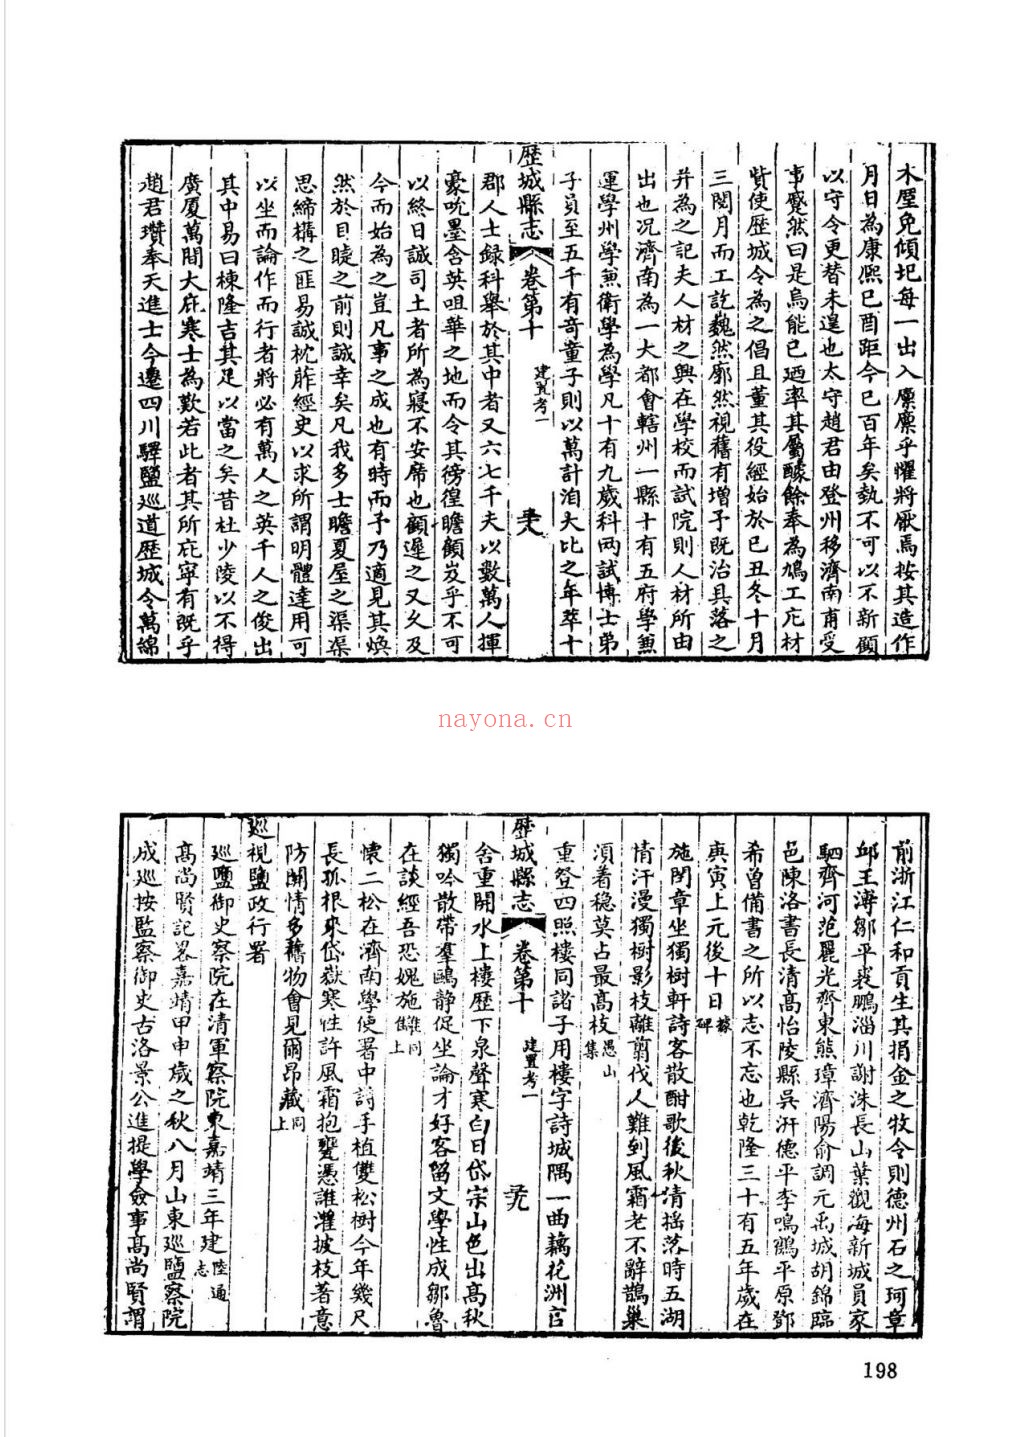 木屋免傾圮每一出入廩廩乎懼將厭焉按其造作
月日為康熙己酉距今已百年矣埶不可以不新顧
以守令更替未遑也太守趙君由登州移濟南甫受
事蹙然曰是烏能已迺率其屬醵餘奉為鳩工庀材
貲使歷城令為之倡且董其役經始於己丑冬十月
三閱月而工訖巍然廓然視舊有增予既治具落之
并為之記夫人材之興在學校而試院則人材所由
出也況濟南為一大都會轄州一縣十有五府學兼
運學州學兼衛學為學凡十有九歲科兩試博士弟
子員至五千有奇童子則以萬計洎大比之年萃十
歷城縣志 卷第十 建置考一
郡人士録科舉於其中者又六七千夫以數萬人揮
豪吮墨含英咀華之地而令其徬徨瞻顧岌乎不可
以終日誠司土者所為寢不安席也顧遲之又久及
今而始為之豈凡事之成也有時而予乃適見其煥
然於目睫之前則誠幸矣凡我多士瞻夏屋之渠渠
思締構之匪易誠枕葄經史以求所謂明體達用可
以坐而論作而行者將必有萬人之英千人之俊出
其中易曰棟隆吉其足以當之矣昔杜少陵以不得
廣厦萬間大庇寒士為歎若此者其所庇寧有既乎
趙君瓚奉天進士今遷四川驛鹽巡道歷城令萬綿
nayona.cn
前浙江仁和貢生其捐金之牧令則德州石之珂章
邱王漙鄒平裘鵬淄川謝洙長山葉觀海新城員家
駟齊河范麗光齊東熊璋濟陽俞調元禹城胡錦臨
邑陳洛書長清高怡陵縣吳汧德平李鳴鶚平原鄧
希曾備書之所以志不忘也乾隆三十有五年歲在
庚寅上元後十日據碑
施閏章坐獨樹軒詩客散酣歌後秋清搖落時五湖
情汗漫獨樹影枝離翦伐人難到風霜老不辭鵲巢
須着穏莫占最高枝愚山集
重登四照樓同諸子用樓字詩城隅一曲藕花洲官
歷城縣志 卷第十 建置考一
舍重開水上樓歷下泉聲寒白日岱宗山色出高秋
獨吟散帶羣鷗静促坐論才好客留文學性成鄒魯
在談經吾恐媿施讎同上
懷二松在濟南學使署中詩手植雙松樹今年幾尺
長孤根來岱嶽寒性許風霜抱甕憑誰灌披枝著意
防閒情多舊物會見爾昂藏同上
巡視鹽政行署
巡鹽御史察院在清軍察院東嘉靖三年建陸通志
高尚賢記畧嘉靖甲申歲之秋八月山東巡鹽察院
成巡按監察御史古洛景公進提學僉事高尚賢謂
198